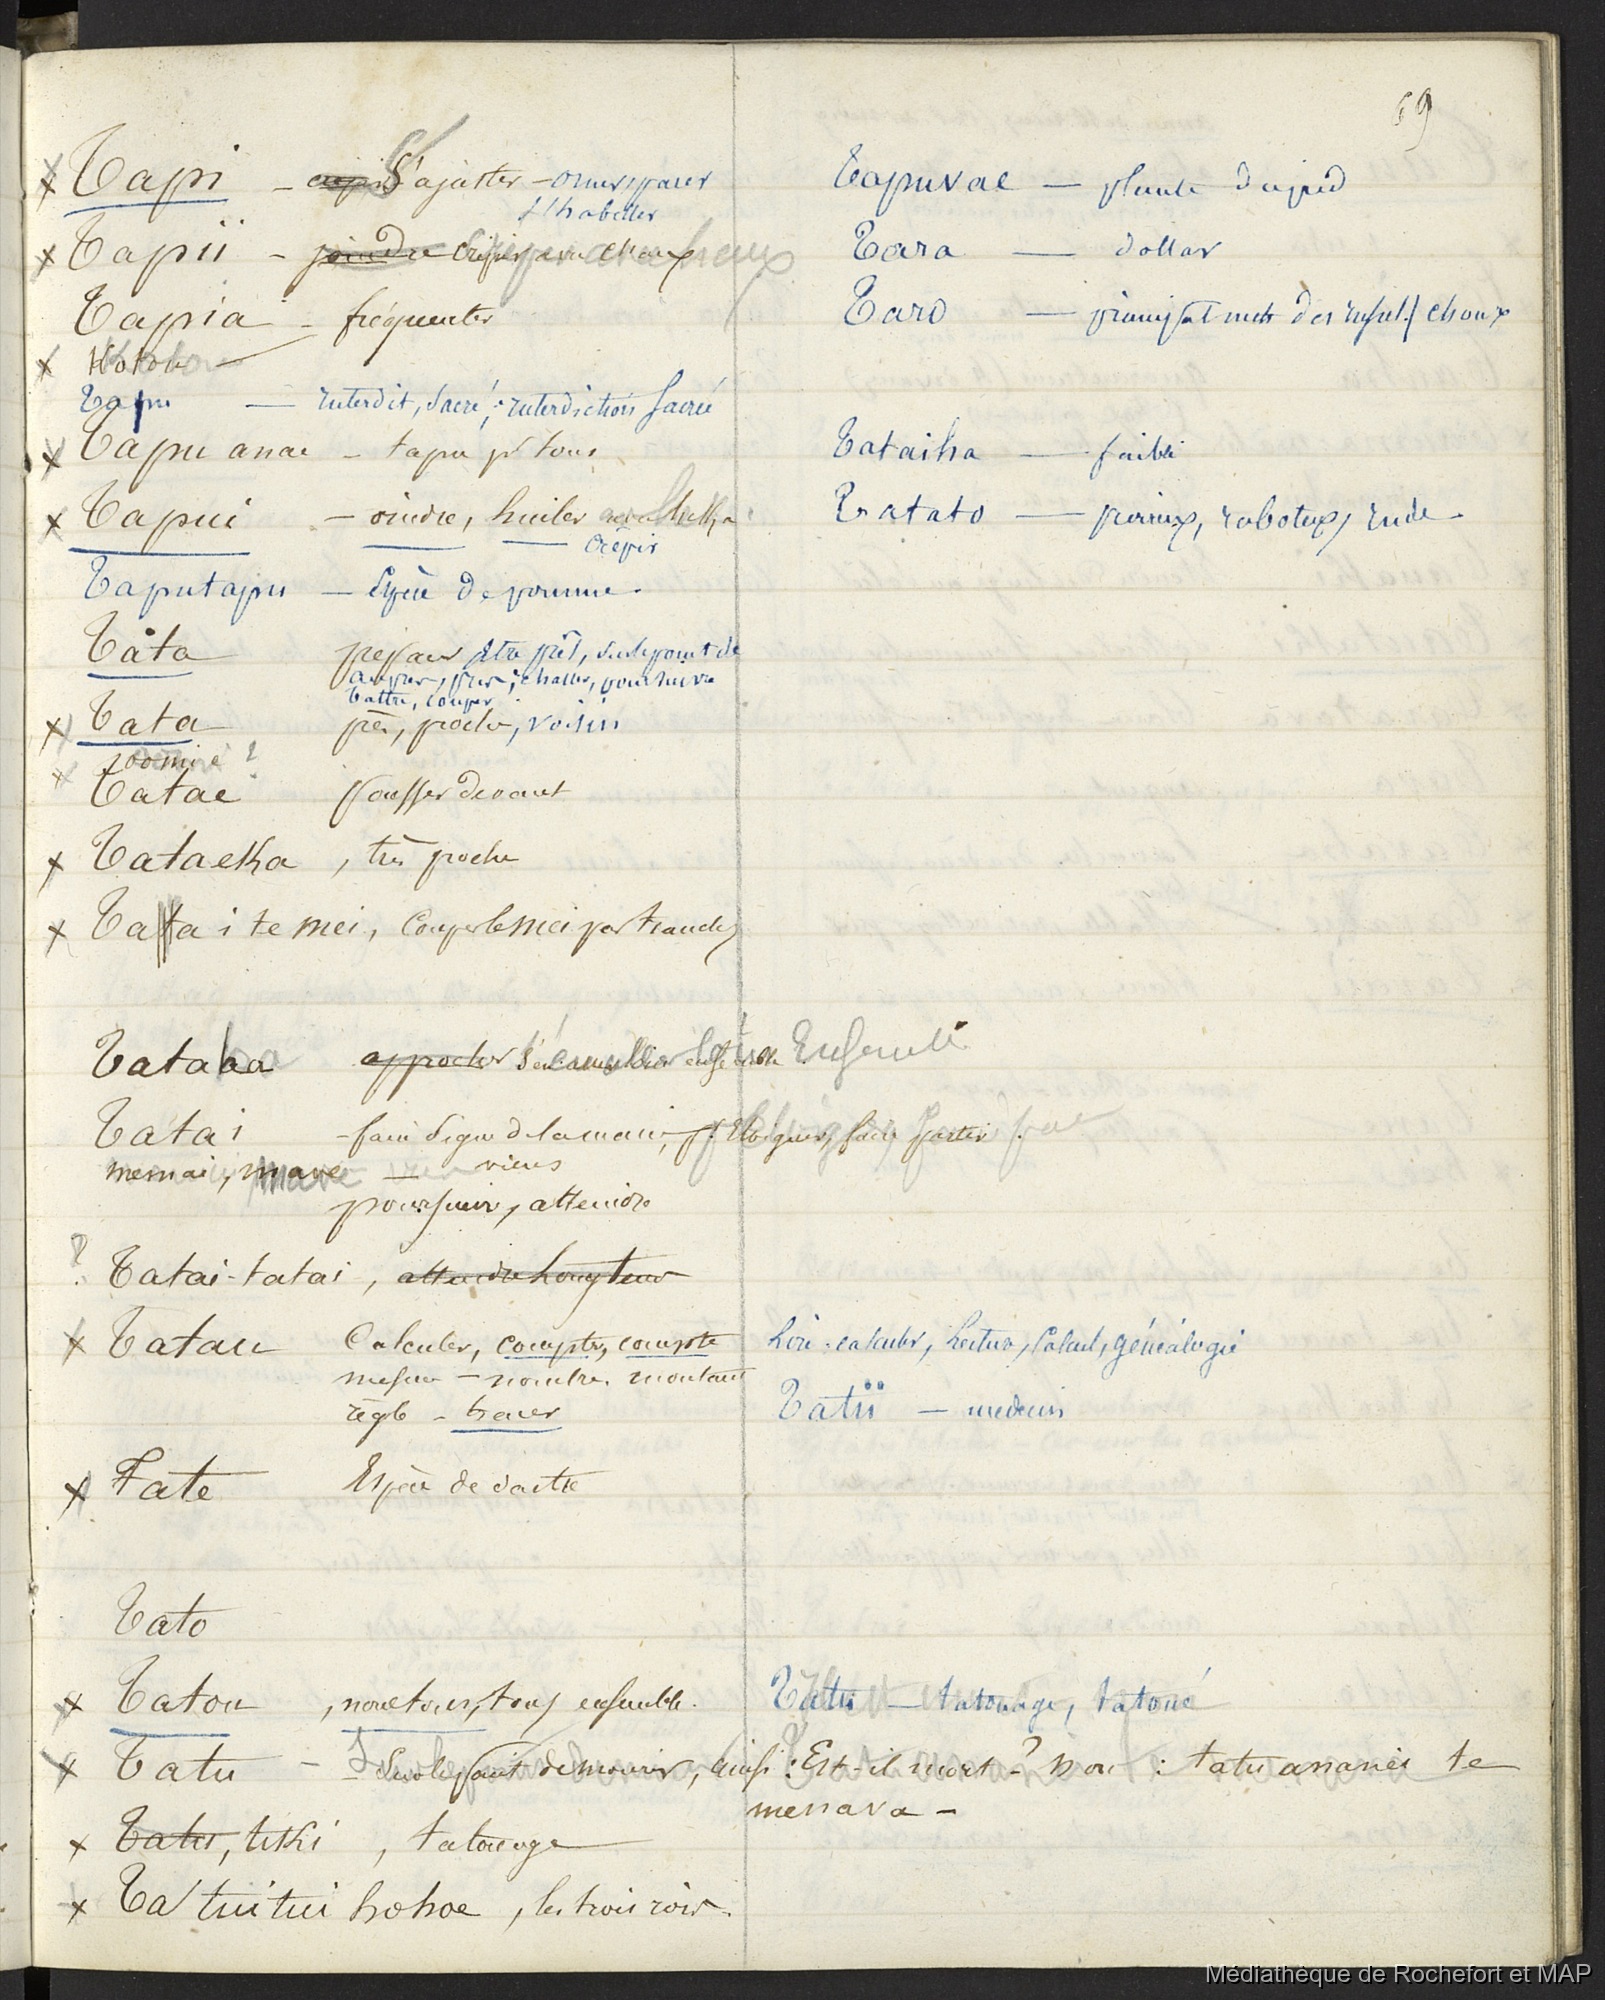 69
Tapi - S'ajuster - orner, parer
s'habiller
Tapii - crépir avec chaux
Tapia - fréquenter
Hokou -
Tapu — interdit, sacré, interdiction sacrée
Tapu anae - tapu pr tous
Tapui - oindre, huiler
crépir
Taputapu — Espèce de pomme.
Tata être prêt, sur le point de
chasser, poursuivre
battre, couper
Tata près, proche, voisin
?
Tatae pousser devant
Tataeka, très proche
Tata i te mei, Couper le mei par tranches
Tataha approcher s'en aller ensemble
Tatai - faire signe de la main, pr Eloigner, faire partir
memai, mave — viens
poursuivre, atteindre
? Tatai-tatai, attendre longtemps
Tatau Calculer, compter, compte
mesure - nombre. montant
règle - tracer
Tate Espèce de dartre
Tato
Tatou, nous tous, tous ensemble.
Tatu - Sur le point de mourir, ainsi : Est-il mort ? - non : tatu ananei te
menava -
Tatu, tiki, tatouage
Ta tuitui hohoe, les trois rois.
Tapuvae — plante du pied
Tara — dollar
Taro — choux
Tataiha — faible
Tatato — raboteux, rude.
Lire. calculer, lecture, calcul, généalogie
Tatii — medecin
Tatu — tatouage, tatoué
Médiathèque de Rochefort et MAP